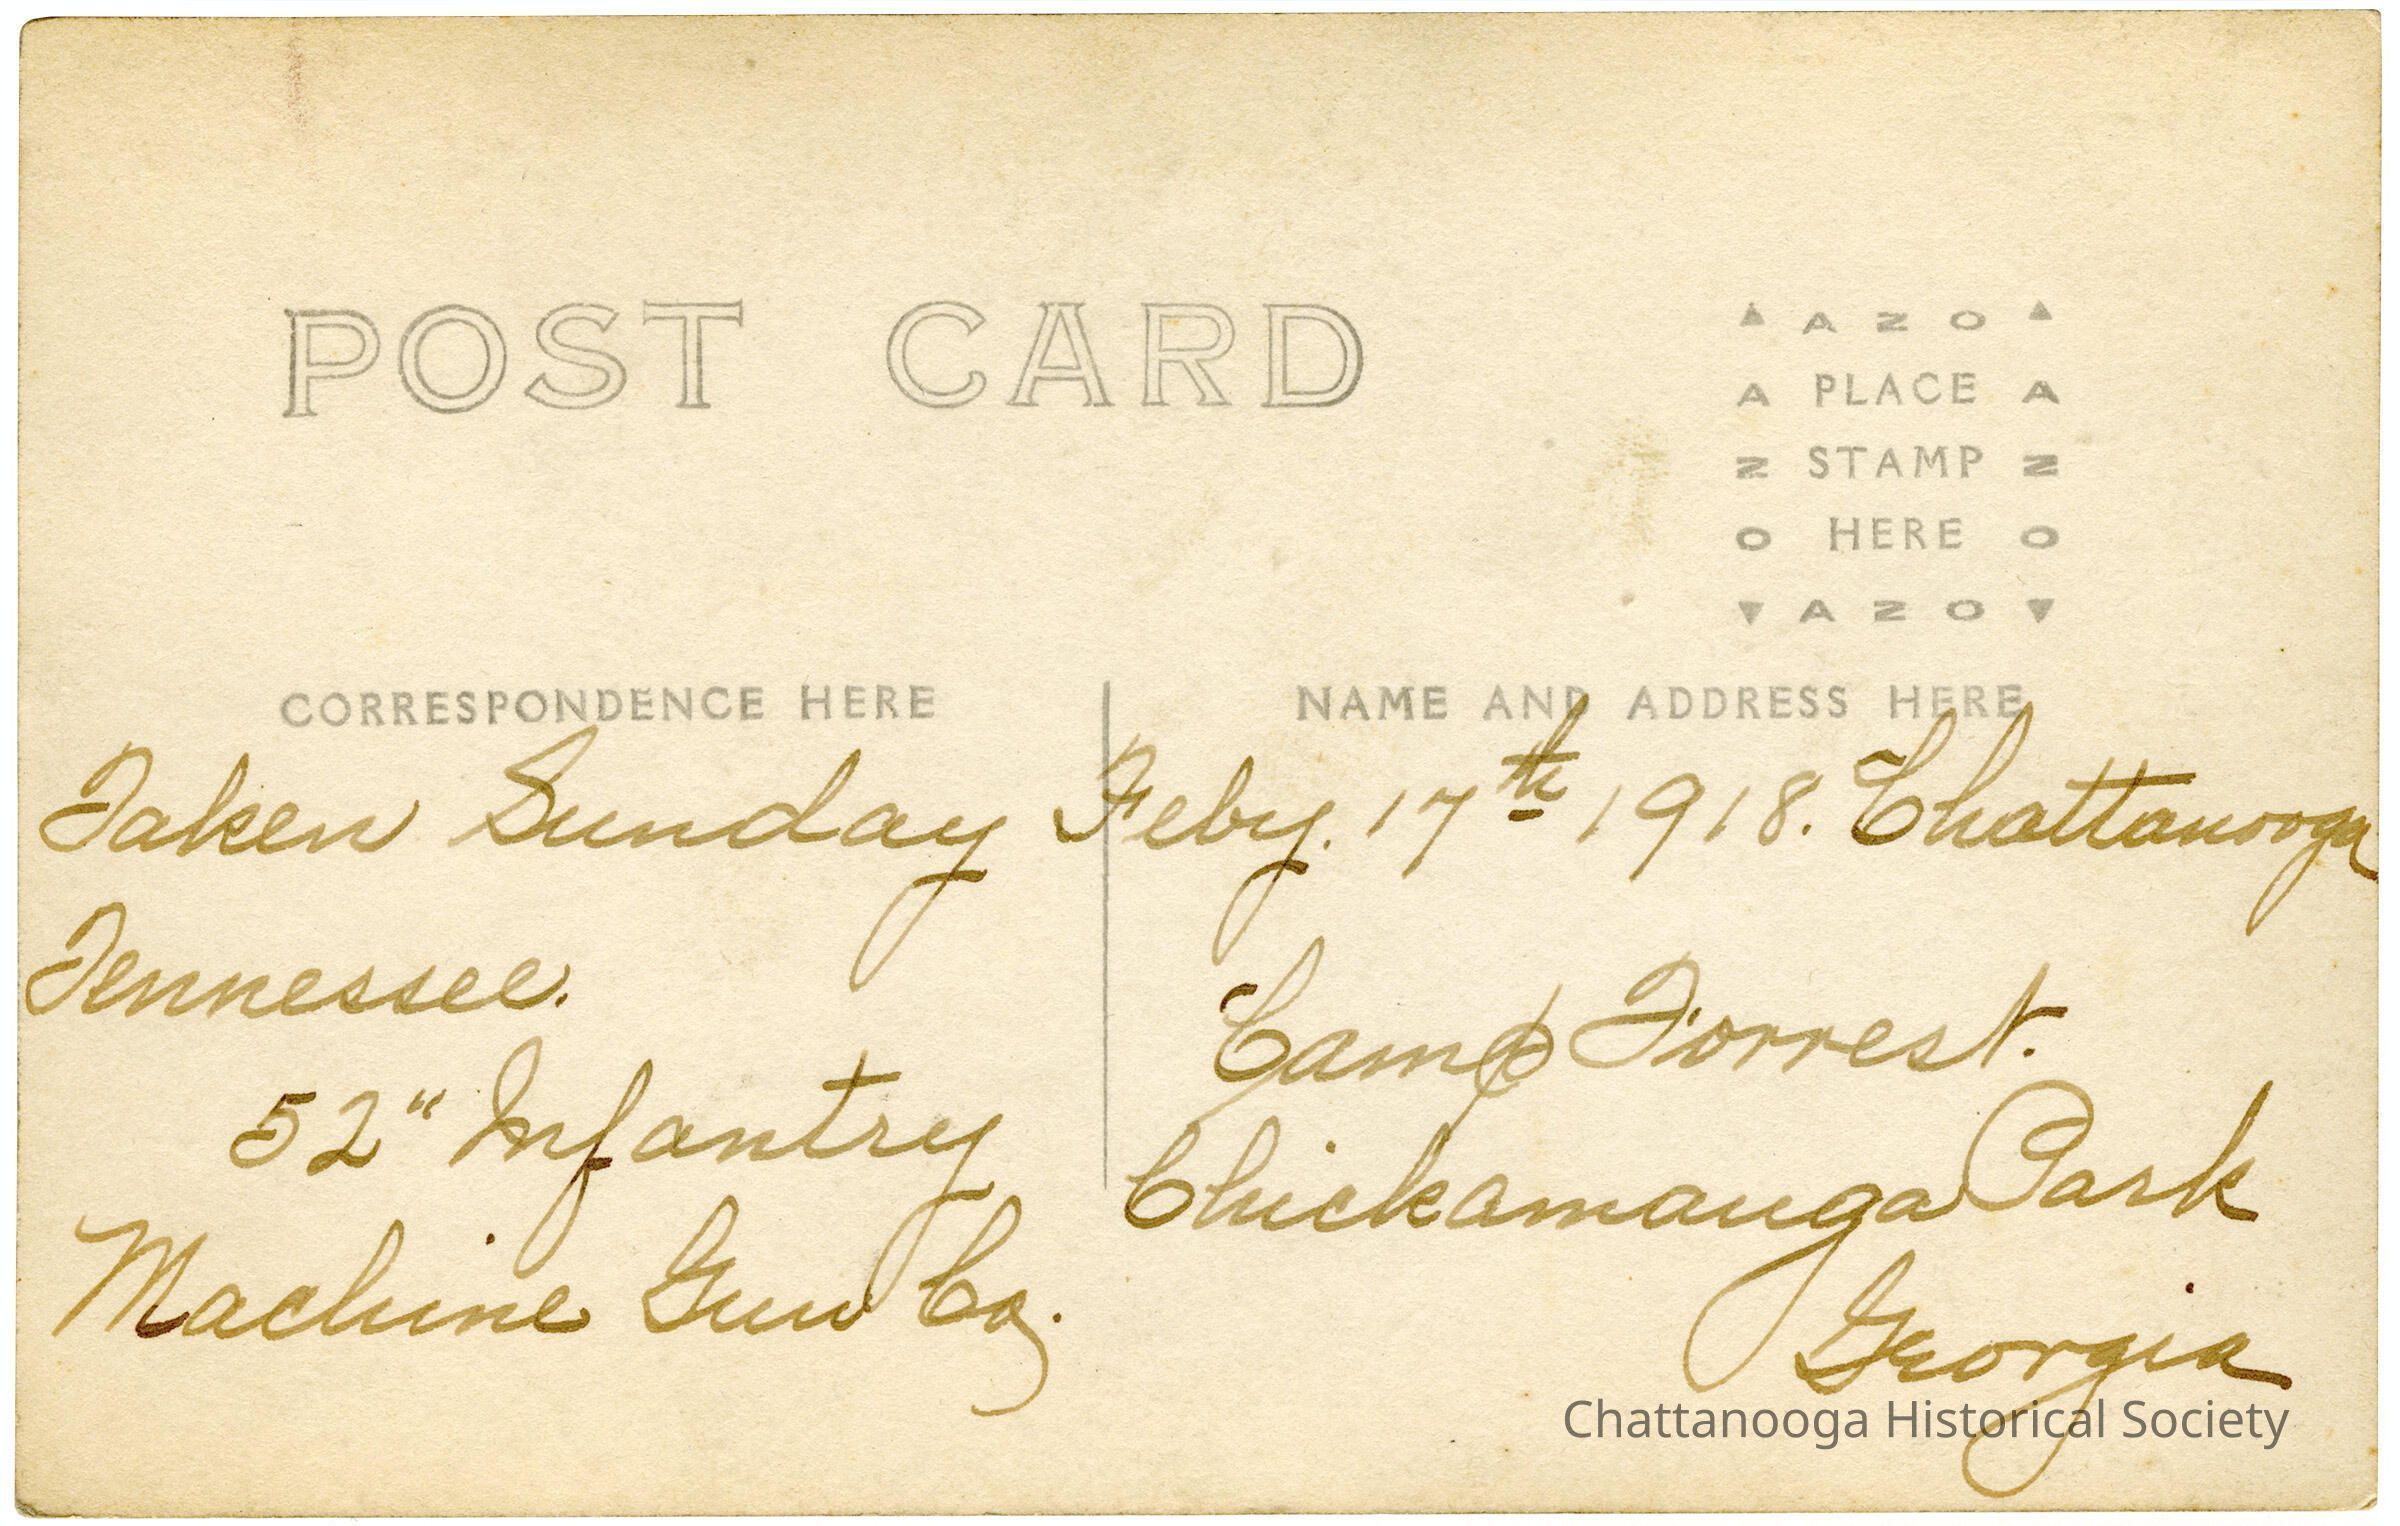 POST CARD
▲ A Z O ▲
A PLACE A
Z STAMP Z
O HERE O
▼ A Z O ▼
CORRESPONDENCE HERE
NAME AND ADDRESS HERE
Taken Sunday Feby. 17th 1918. Chattanooga
Tennessee.
52" Infantry
Machine Gun Co.
Camp Forrest.
Chickamauga Park
Georgia
Chattanooga Historical Society